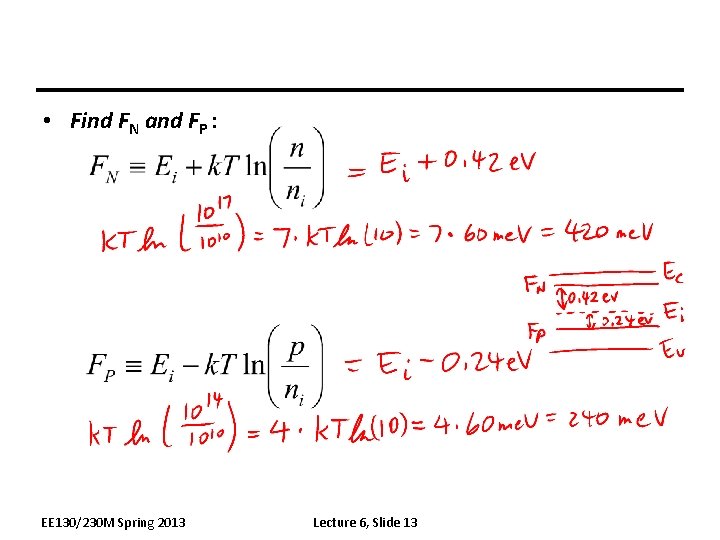 • Find F_N and F_P :
F_N ≡ E_i + kT ln(n/n_i) = E_i + 0.42 eV
kT ln(10^17/10^10) = 7 · kT ln(10) = 7 · 60 meV = 420 meV
F_N E_c
0.42 eV
0.24 eV E_i
F_P
E_v
F_P ≡ E_i − kT ln(p/n_i) = E_i − 0.24 eV
kT ln(10^14/10^10) = 4 · kT ln(10) = 4 · 60 meV = 240 meV
EE 130/230M Spring 2013 Lecture 6, Slide 13